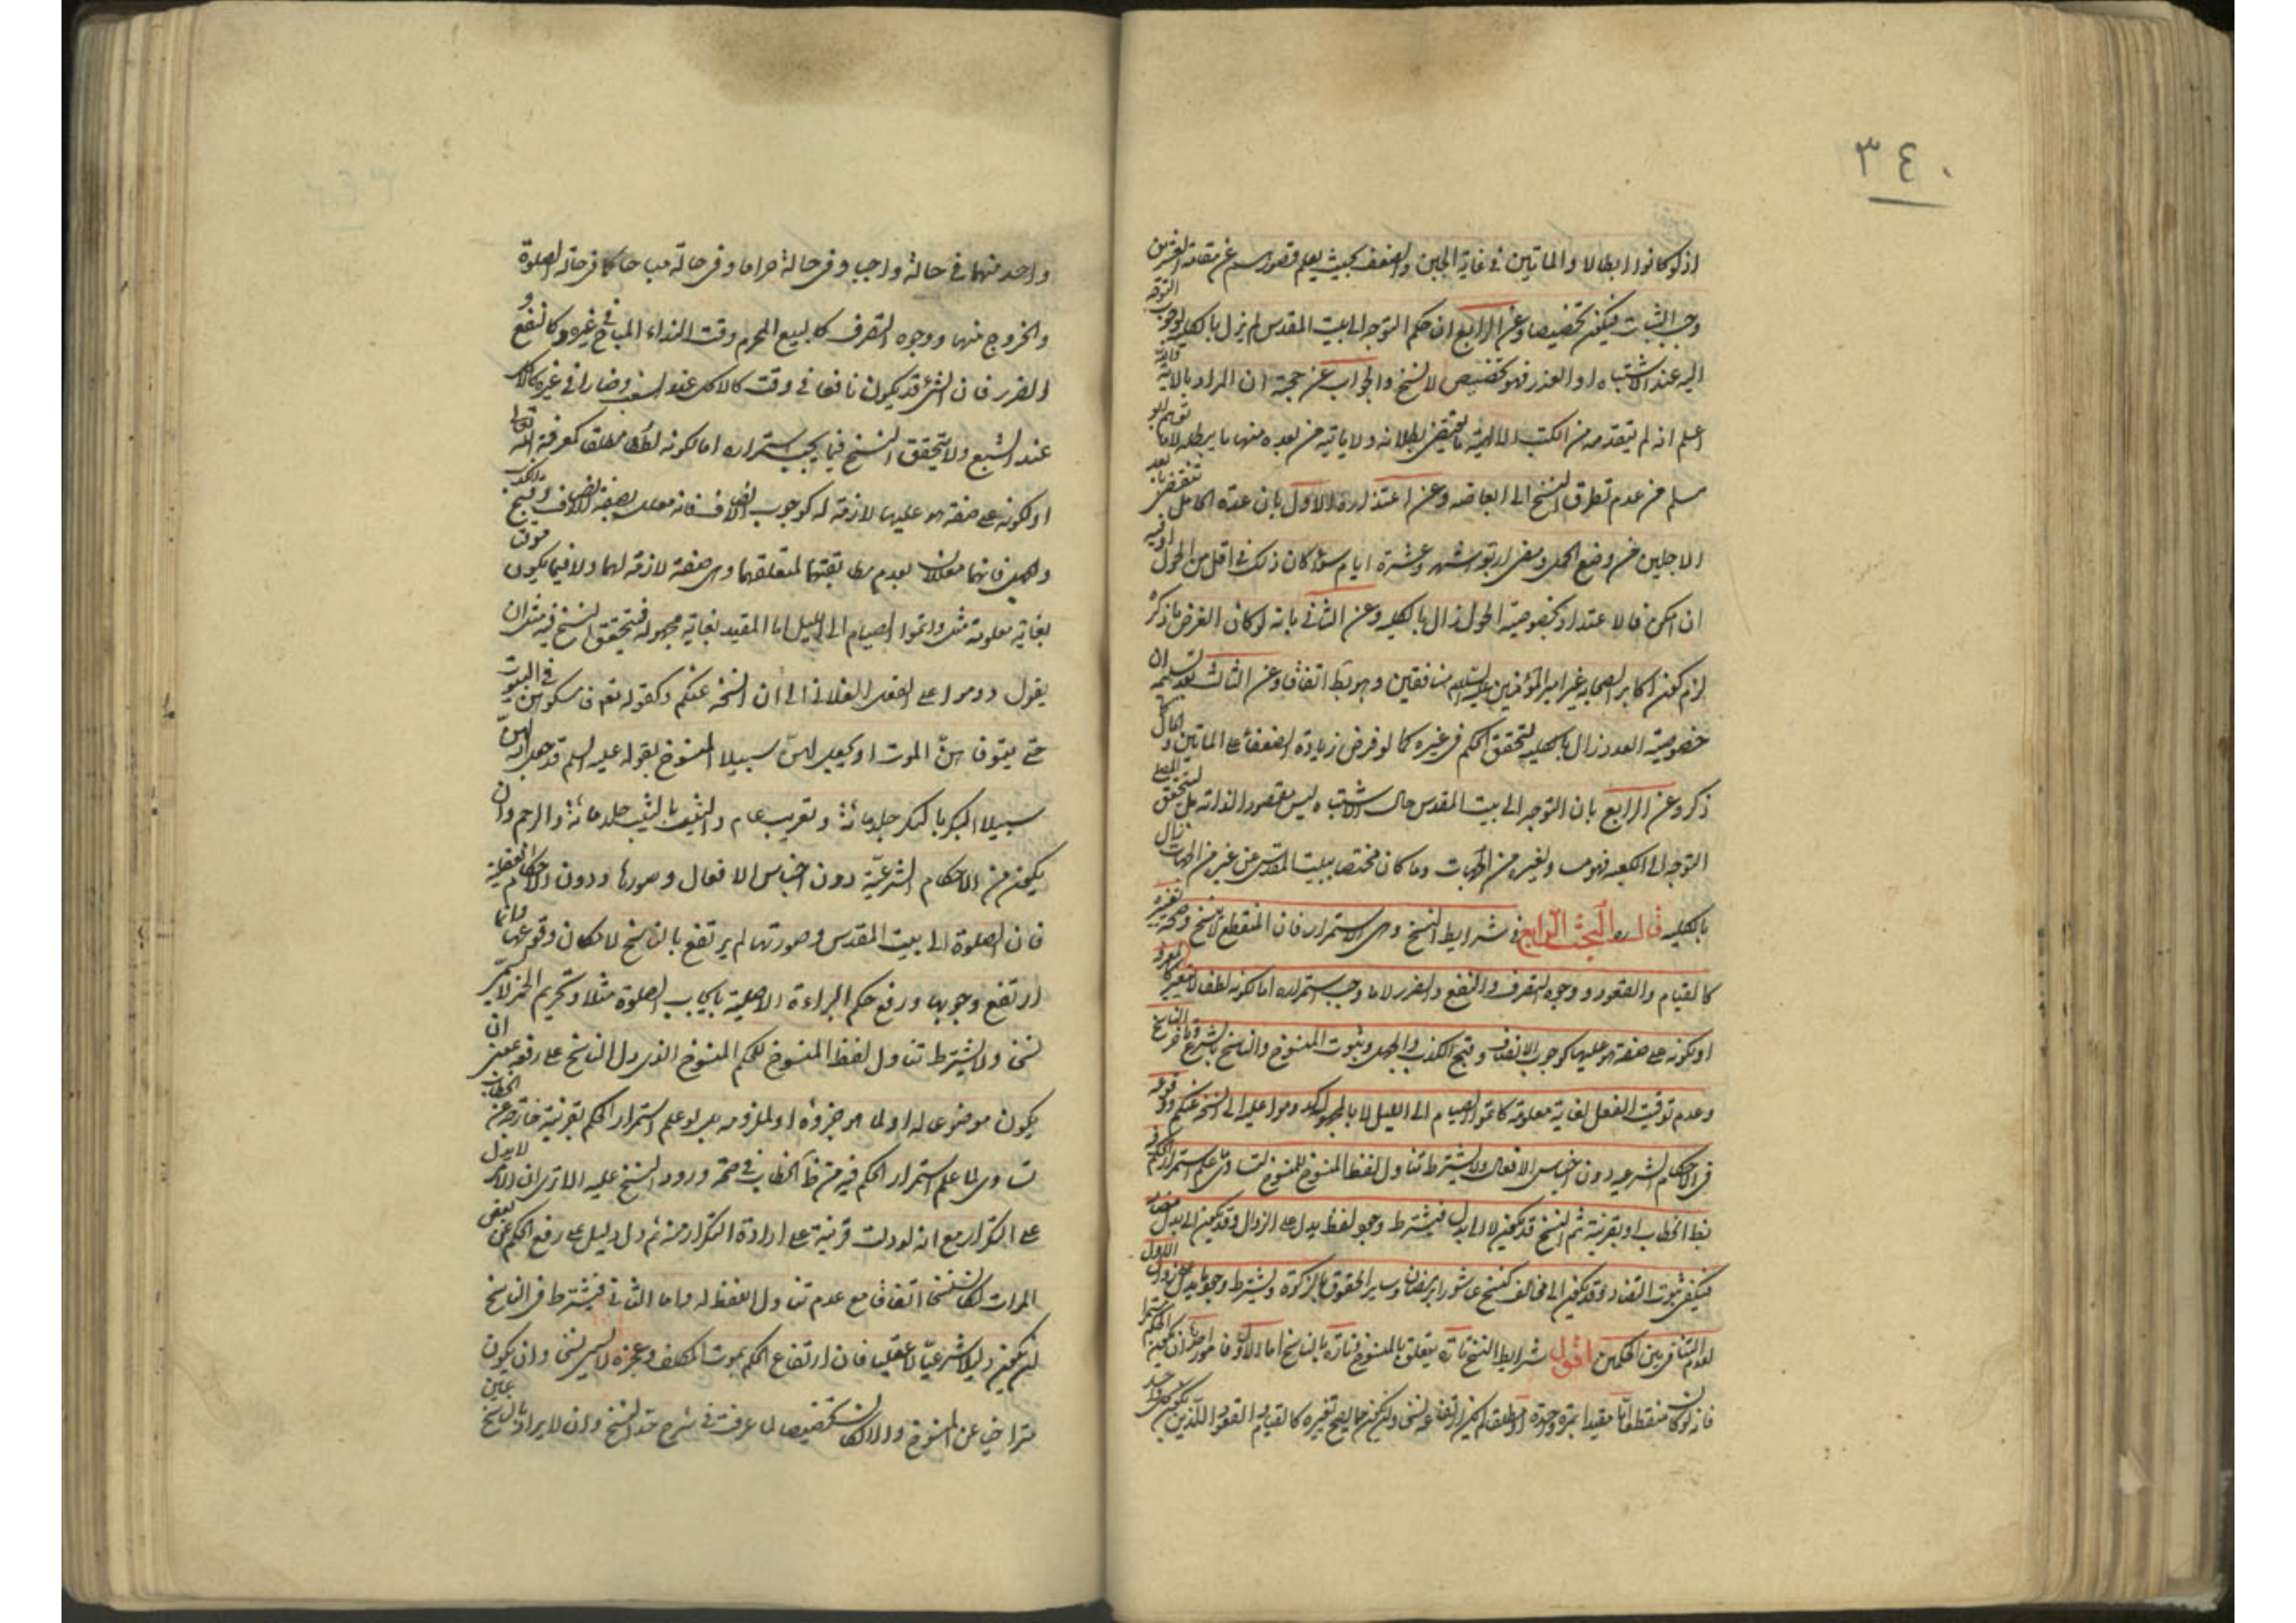 ٣٤٠
اذ لو كانوا ابطالا والمائتين في غاية الجبن والضعف بحيث يعلم قصورهم عن مقاومة العشرين
وجب الثبات فيكون تخصيصا وعن الرابع ان حكم التوجه الى بيت المقدس لم يزل بالكليه لوجوب التوجه
اليه عند الاشتباه او العذر فهو تخصيص لا نسخ والجواب عن حجة ان المراد بالاية
اعلم انه لم يتقدمه من الكتب الالهية ما يقتضي بطلانه ولا ياتيه من بعده منها ما يبطله لا ما
مسلم من عدم تطرق النسخ الى ابعاضه وعن اعتذاره الاول بان عدة الحامل
الاجلين من وضع الحمل ومضي اربعة اشهر وعشرة ايام سواء كان ذلك في اقل من الحول
ان امكن فالاعتداد بخصوصية الحول زال بالكليه وعن الثاني بانه لو كان الغرض ما ذكر
لزم كون اكابر الصحابه غير امير المؤمنين عليه السلام منافقين وهو بط اتفاقا وعن الثالث
خصوصية العدد زال بالكليه لتحقق الحكم في غيره كما لو فرض زيادة الضعفاء على المائتين والحال
ذكر وعن الرابع بان التوجه الى بيت المقدس حال الاشتباه ليس مقصودا لذاته بل لتحقق
التوجه الى الكعبه فهو وغيره من الجهات وما كان مختصا ببيت المقدس عن غيره من الجهات زال
بالكليه قال ره البحث الرابع في شرايط النسخ وهي الاستمرار فان المنقطع لا ينسخ وصحة تغيره
كالقيام والقعود ووجوه التصرف والنفع والضرر لا ما وجب استمراره اما لكونه لطفا
او لكونه على صفة هو عليها كوجوب الانصاف وقبح الكذب والجهل وثبوت المنسوخ والناسخ بالشرع
وعدم توقيت الفعل لغاية معلومة كاتموا الصيام الى الليل لا بالمجهول كدوموا عليه الى ان انسخ عنكم
في الاحكام الشرعيه دون اجناس الافعال ولا يشترط تناول لفظ المنسوخ للمنسوخ لتساوي علم استمرار الحكم
بظ الخطاب او بقرينة ثم النسخ قد يكون لا الى بدل فيشترط وجود لفظ يدل على الزوال وقد يكون الى بدل
فيكفي ثبوت التضاد وقد يكون الى مخالف كنسخ عاشورا برمضان وساير الحقوق بالزكوة ويشترط وجود ما يدل على زوال الاول
لعدم التنافي بين الحكمين اقول شرايط النسخ تارة يتعلق بالمنسوخ وتارة بالناسخ اما الاول فامور
فانه لو كان منقطعا مقيدا بمرة واحدة لم يكن ارتفاعه نسخا وان يكون مما يصح تغيره كالقيام والقعود اللذين
واحد منهما في حالة واجبا وفي حالة حراما وفي حالة مباحا كما في حالة الصلوة
والخروج منها ووجوه التصرف كالبيع المحرم وقت النداء المباح في غيره وكالنفع
والضرر فان الشئ قد يكون نافعا في وقت كالاكل عند السغب وضارا في غيره كالاكل
عند الشبع ولا يتحقق النسخ فيما يجب استمراره اما لكونه لطفا مطلقا كمعرفة الله تعالى
او لكونه على صفة هو عليها لازمة له كوجوب الانصاف فانه معلل بصفة الانصاف وقبح الكذب
والجهل فانهما معللان بعدم مطابقتهما لمتعلقهما وهي صفة لازمة لهما ولا فيما يكون موقتا
بغاية معلومة مثل واتموا الصيام الى الليل اما المقيد بغاية مجهولة فيتحقق النسخ فيه مثل ان
يقول دوموا على الفعل الفلاني الى ان انسخه عنكم وكقوله تعم فامسكوهن في البيوت
حتى يتوفاهن الموت او يجعل الله لهن سبيلا المنسوخ بقوله عليه السلم قد جعل الله لهن
سبيلا البكر بالبكر جلد مائة وتغريب عام والثيب بالثيب جلد مائة والرجم وان
يكون من الاحكام الشرعية دون اجناس الافعال وصورها ودون الاحكام العقلية
فان الصلوة الى بيت المقدس وصورتها لم يرتفع بالناسخ لامكان وقوعها وانما
ارتفع وجوبها ورفع حكم البراءة الاصلية بايجاب الصلوة مثلا وتحريم الخمر لا يسمى
نسخا ولا يشترط تناول لفظ المنسوخ للحكم المنسوخ الذي دل الناسخ على رفعه بمعنى ان
يكون موضوعا له او لما هو جزؤه او لملزومه بل لو علم استمرار الحكم بقرينة خارجة عن الخطاب
تساوى لما علم استمرار الحكم فيه من ظ الخطاب في صحة ورود النسخ عليه الا ترى ان الامر لا يدل
على التكرار مع انه لو دلت قرينة على ارادة التكرار منه ثم دل دليل على رفع الحكم عن بعض
المرات لكان نسخا اتفاقا مع عدم تناول اللفظ له واما الثاني فيشترط في الناسخ
ان يكون دليلا شرعيا لا عقليا فان ارتفاع الحكم بموت المكلف وعجزه ليس نسخا وان يكون
متراخيا عن المنسوخ والا لكان تخصيصا لما عرفت في شرح حد النسخ وان لا يراد بالناسخ